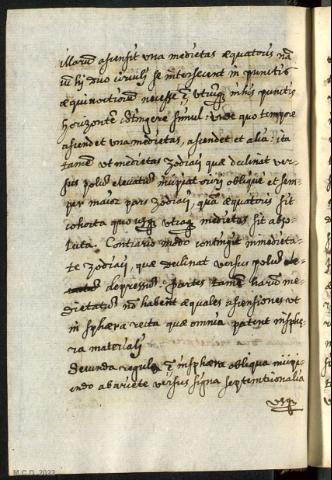 illarum ascensit una medietas æquatoris nā
cum hij duo circuli se intersecent in punctis
æquinoctiorum necesse est utrūq; in his punctis
horizontē cōtingere simul: Unde quo tempore
ascendet una medietas, ascendet et alia: ita
tamen ut medietas zodiaci quæ declinat ver-
sus polum elevatum incipiat oriri oblique et sem-
per maior pars zodiaci, quā æquatoris sit
exhorta quousq; utraq; medietas sit abso-
luta. Contrario modo contingit in medieta-
te zodiaci, quæ declinat versus polum
depressum: partes tamen harum me-
dietatum nō habent æquales ascensiones ut
in sphæra recta quæ omnia patent in sphe-
ra materiali
Secunda regula est in sphæra obliqua incipi-
endo ab ariete versus signa septentrionalia
usq;
M.C.D. 2022